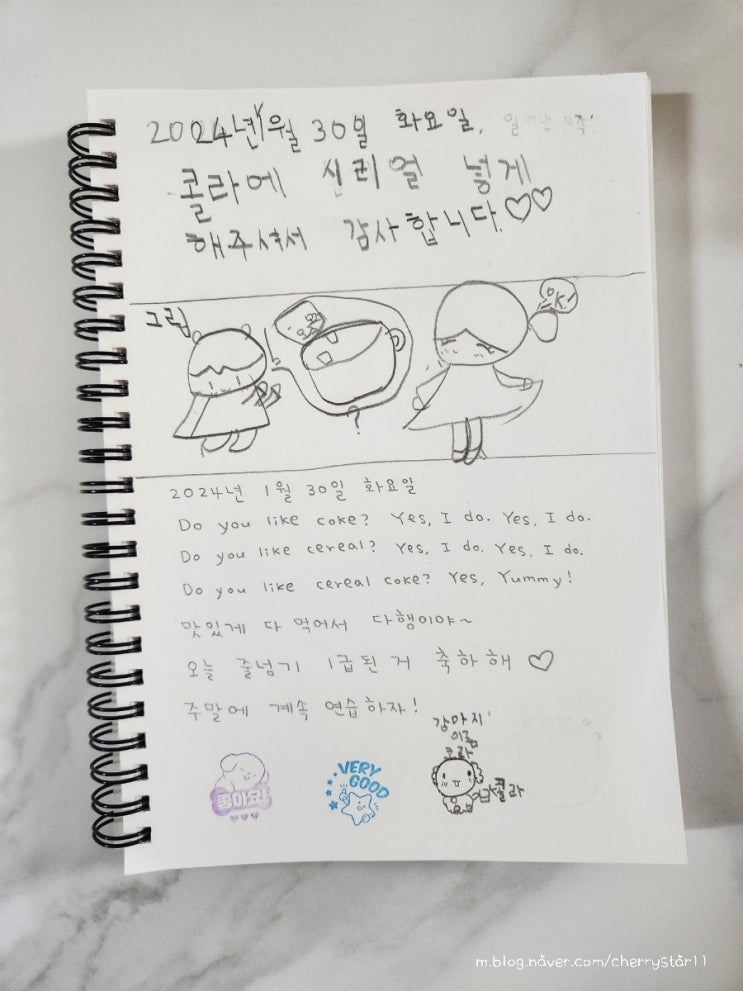 2024년 1월 30일 화요일,
콜라에 시리얼 넣게
해주셔서 감사합니다.♡♡
그림
OK!
?
2024년 1월 30일 화요일
Do you like coke? Yes, I do. Yes, I do.
Do you like cereal? Yes, I do. Yes, I do.
Do you like cereal coke? Yes, Yummy!
맛있게 다 먹어서 다행이야~
오늘 줄넘기 1급된 거 축하해 ♡
주말에 계속 연습하자!
강아지
이름
콜라
좋아요
VERY
GOOD
m.blog.naver.com/cherrystar11